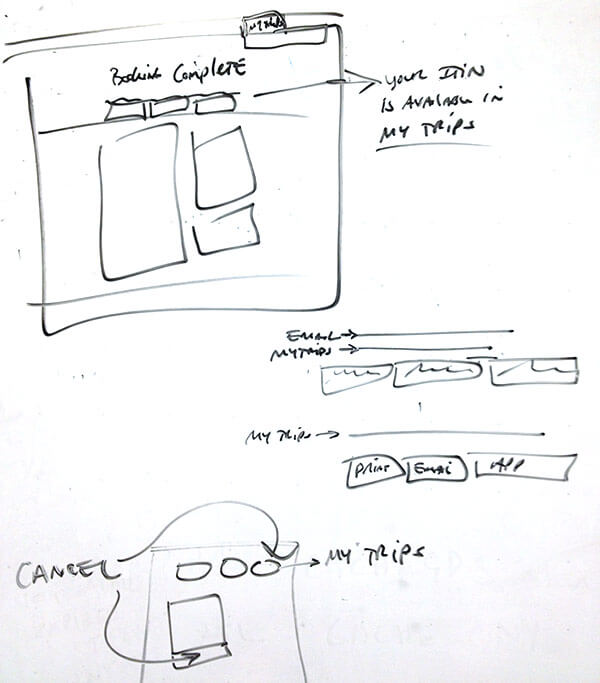 MY TRIPS
Booking Complete
YOUR ITIN
IS AVAILABLE IN
MY TRIPS
EMAIL
MY TRIPS
MY TRIPS
PRINT EMAIL APP
CANCEL
MY TRIPS